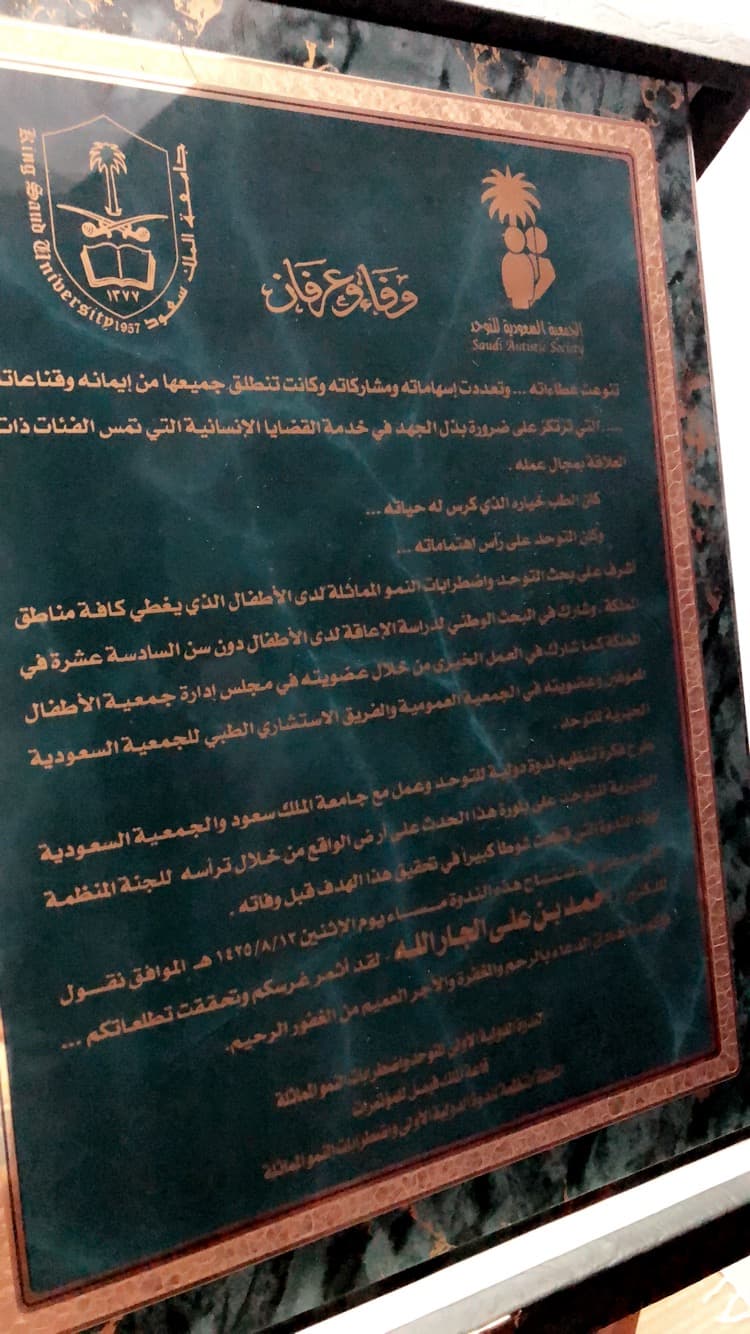 جامعة الملك سعود
King Saud University 1957
١٣٧٧
الجمعية السعودية للتوحد
Saudi Autistic Society
وفاء وعرفان
تنوعت عطاءاته ... وتعددت إسهاماته ومشاركاته وكانت تنطلق جميعها من إيمانه وقناعاته
التي ترتكز على ضرورة بذل الجهد في خدمة القضايا الإنسانية التي تمس الفئات ذات
العلاقة بمجال عمله .
كان الطب خياره الذي كرس له حياته ...
وكان التوحد على رأس اهتماماته ...
أشرف على بحث التوحد واضطرابات النمو المماثلة لدى الأطفال الذي يغطي كافة مناطق
المملكة . وشارك في البحث الوطني لدراسة الإعاقة لدى الأطفال دون سن السادسة عشرة في
المملكة كما شارك في العمل الخيري من خلال عضويته في مجلس إدارة جمعية الأطفال
المعوقين وعضويته في الجمعية العمومية والفريق الاستشاري الطبي للجمعية السعودية
الخيرية للتوحد .
فكرة تنظيم ندوة دولية للتوحد وعمل مع جامعة الملك سعود والجمعية السعودية
الخيرية للتوحد على بلورة هذا الحدث على أرض الواقع من خلال ترأسه للجنة المنظمة
لهذه الندوة التي قطعت شوطاً كبيراً في تحقيق هذا الهدف قبل وفاته .
هذه الندوة مساء يوم الاثنين ١٤٢٥/٨/١٣ هـ الموافق نقول
للدكتور بن علي الجارالله . لقد أثمر غرسكم وتحققت تطلعاتكم ...
الدعاء بالرحم والمغفرة والأجر العميم من الغفور الرحيم .
الندوة الدولية الأولى للتوحد واضطرابات النمو المماثلة
قاعة الملك فيصل للمؤتمرات
اللجنة المنظمة للندوة الدولية الأولى واضطرابات النمو المماثلة